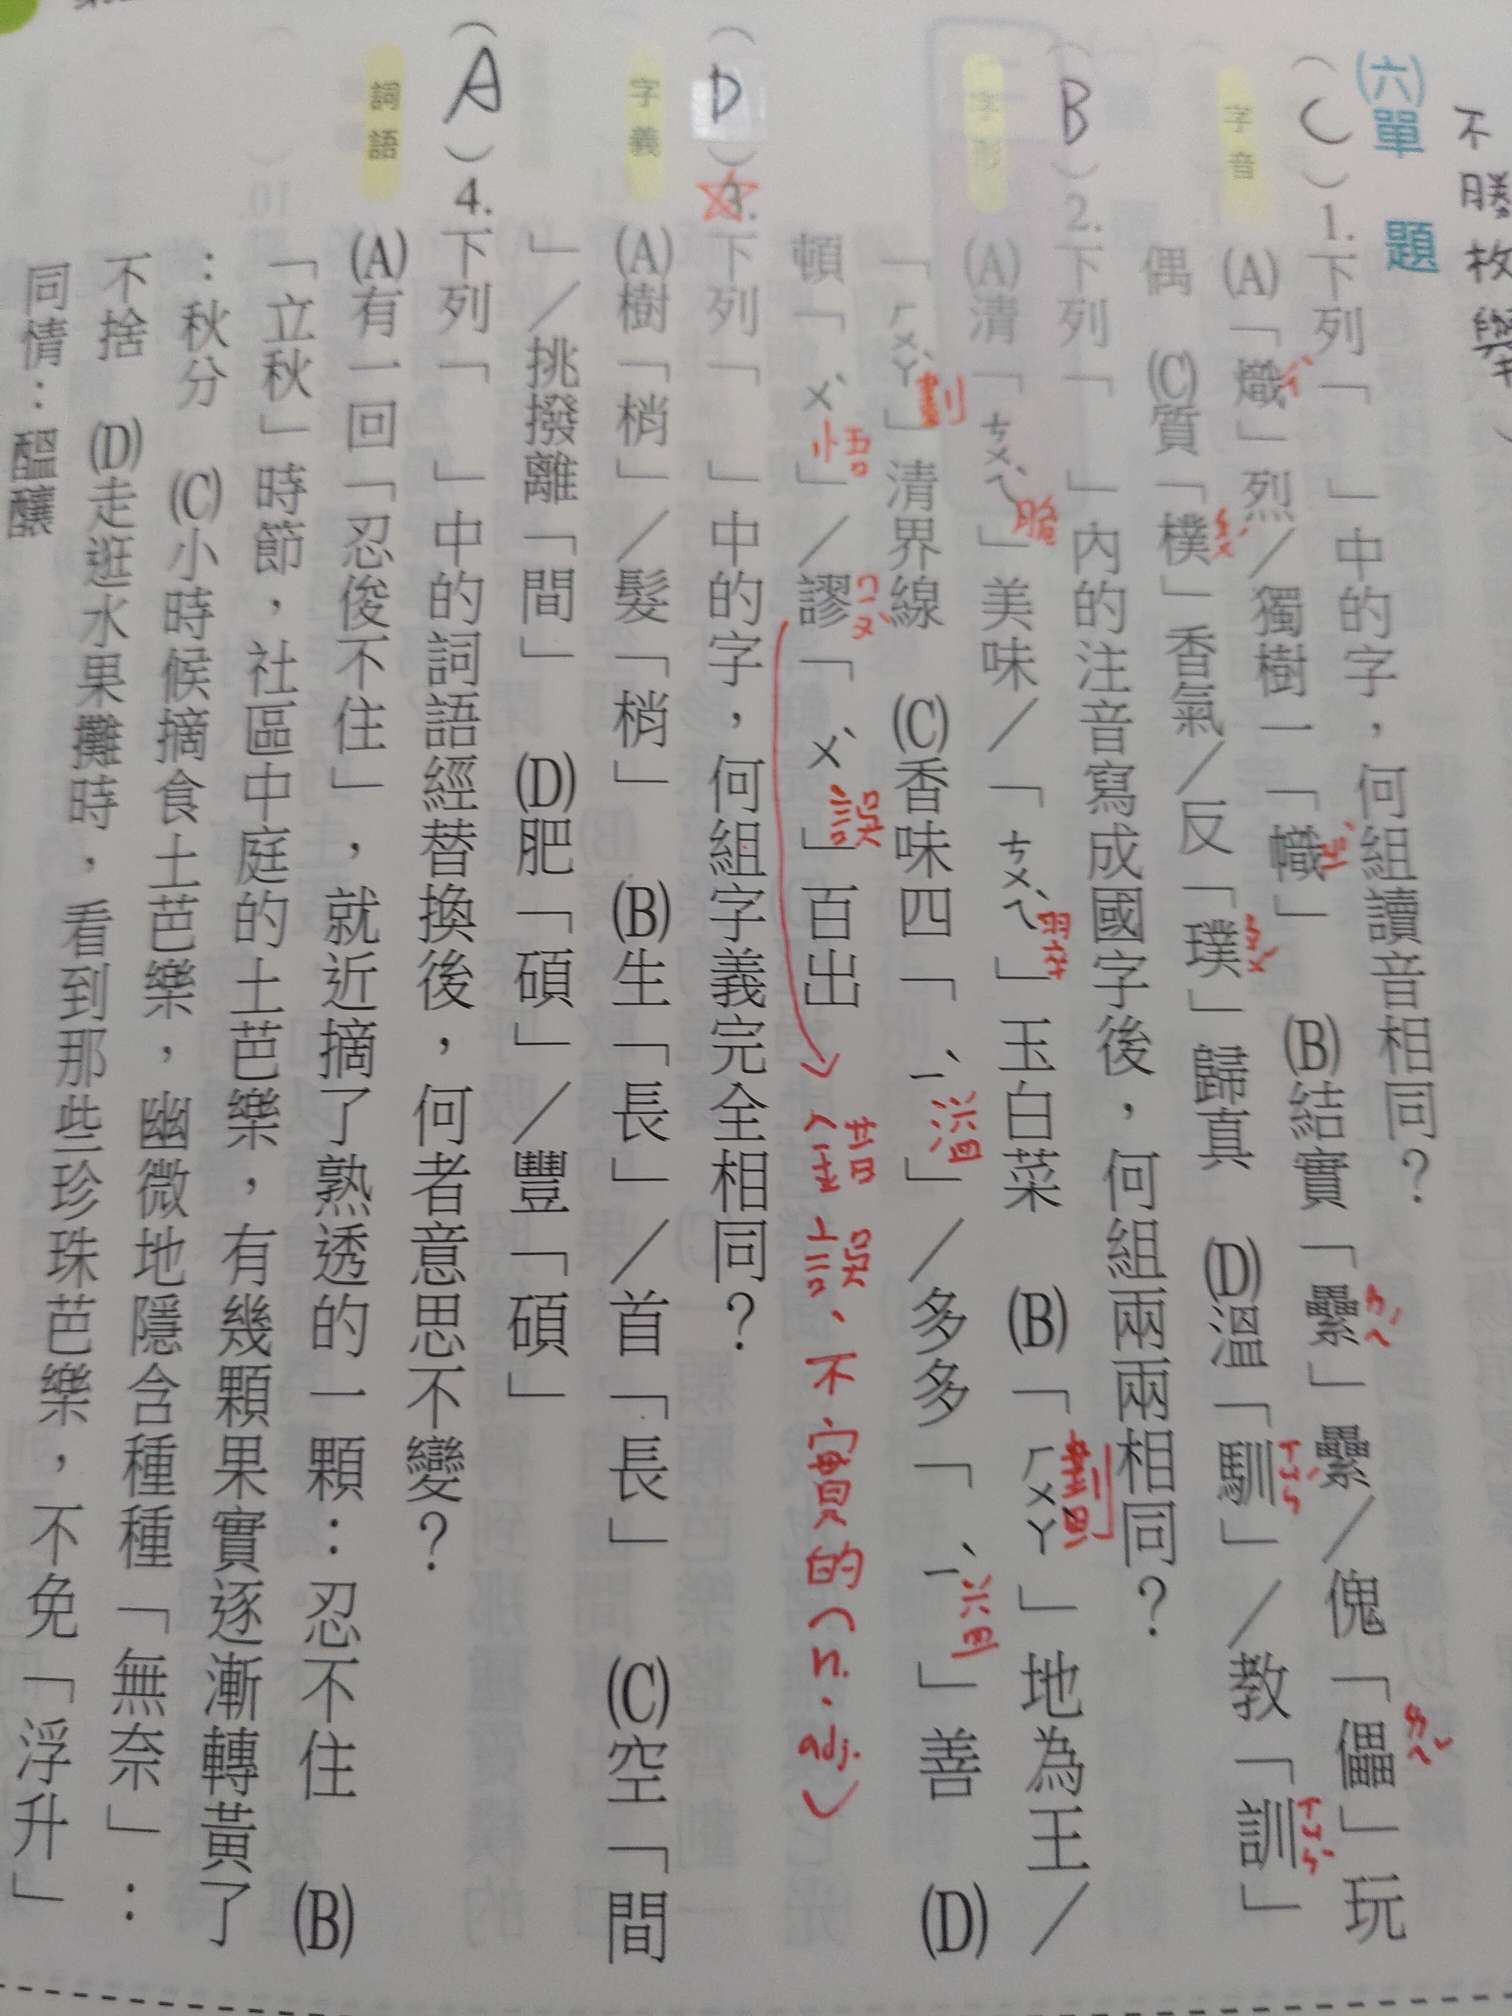 不勝枚舉
(六)單題
字音
(C)1.下列「　」中的字，何組讀音相同？
(A)「熾」烈／獨樹一「幟」　(B)結實「纍」纍／傀「儡」玩
ㄔˋ
ㄓˋ
ㄌㄟˊ
ㄌㄟˇ
偶　(C)質「樸」香氣／反「璞」歸真　(D)溫「馴」／教「訓」
ㄆㄨˊ
ㄆㄨˊ
ㄒㄩㄣˊ
ㄒㄩㄣˋ
字形
(B)2.下列「　」內的注音寫成國字後，何組兩兩相同？
(A)清「ㄘㄨㄟˋ」美味／「ㄘㄨㄟˋ」玉白菜　(B)「ㄏㄨㄚˋ」地為王／
脆
翠
劃
「ㄏㄨㄚˋ」清界線　(C)香味四「ㄧˋ」／多多「ㄧˋ」善　(D)
劃
溢
益
頓「ㄨˋ」／謬「ㄨˋ」百出
悟
ㄇㄧㄡˋ
誤
(錯誤、不實的(n.adj.)
字義
(D)3.下列「　」中的字，何組字義完全相同？
(A)樹「梢」／髮「梢」　(B)生「長」／首「長」　(C)空「間
」／挑撥離「間」　(D)肥「碩」／豐「碩」
詞語
(A)4.下列「　」中的詞語經替換後，何者意思不變？
(A)有一回「忍俊不住」，就近摘了熟透的一顆：忍不住　(B)
「立秋」時節，社區中庭的土芭樂，有幾顆果實逐漸轉黃了
：秋分　(C)小時候摘食土芭樂，幽微地隱含種種「無奈」：
不捨　(D)走逛水果攤時，看到那些珍珠芭樂，不免「浮升」
同情：醞釀